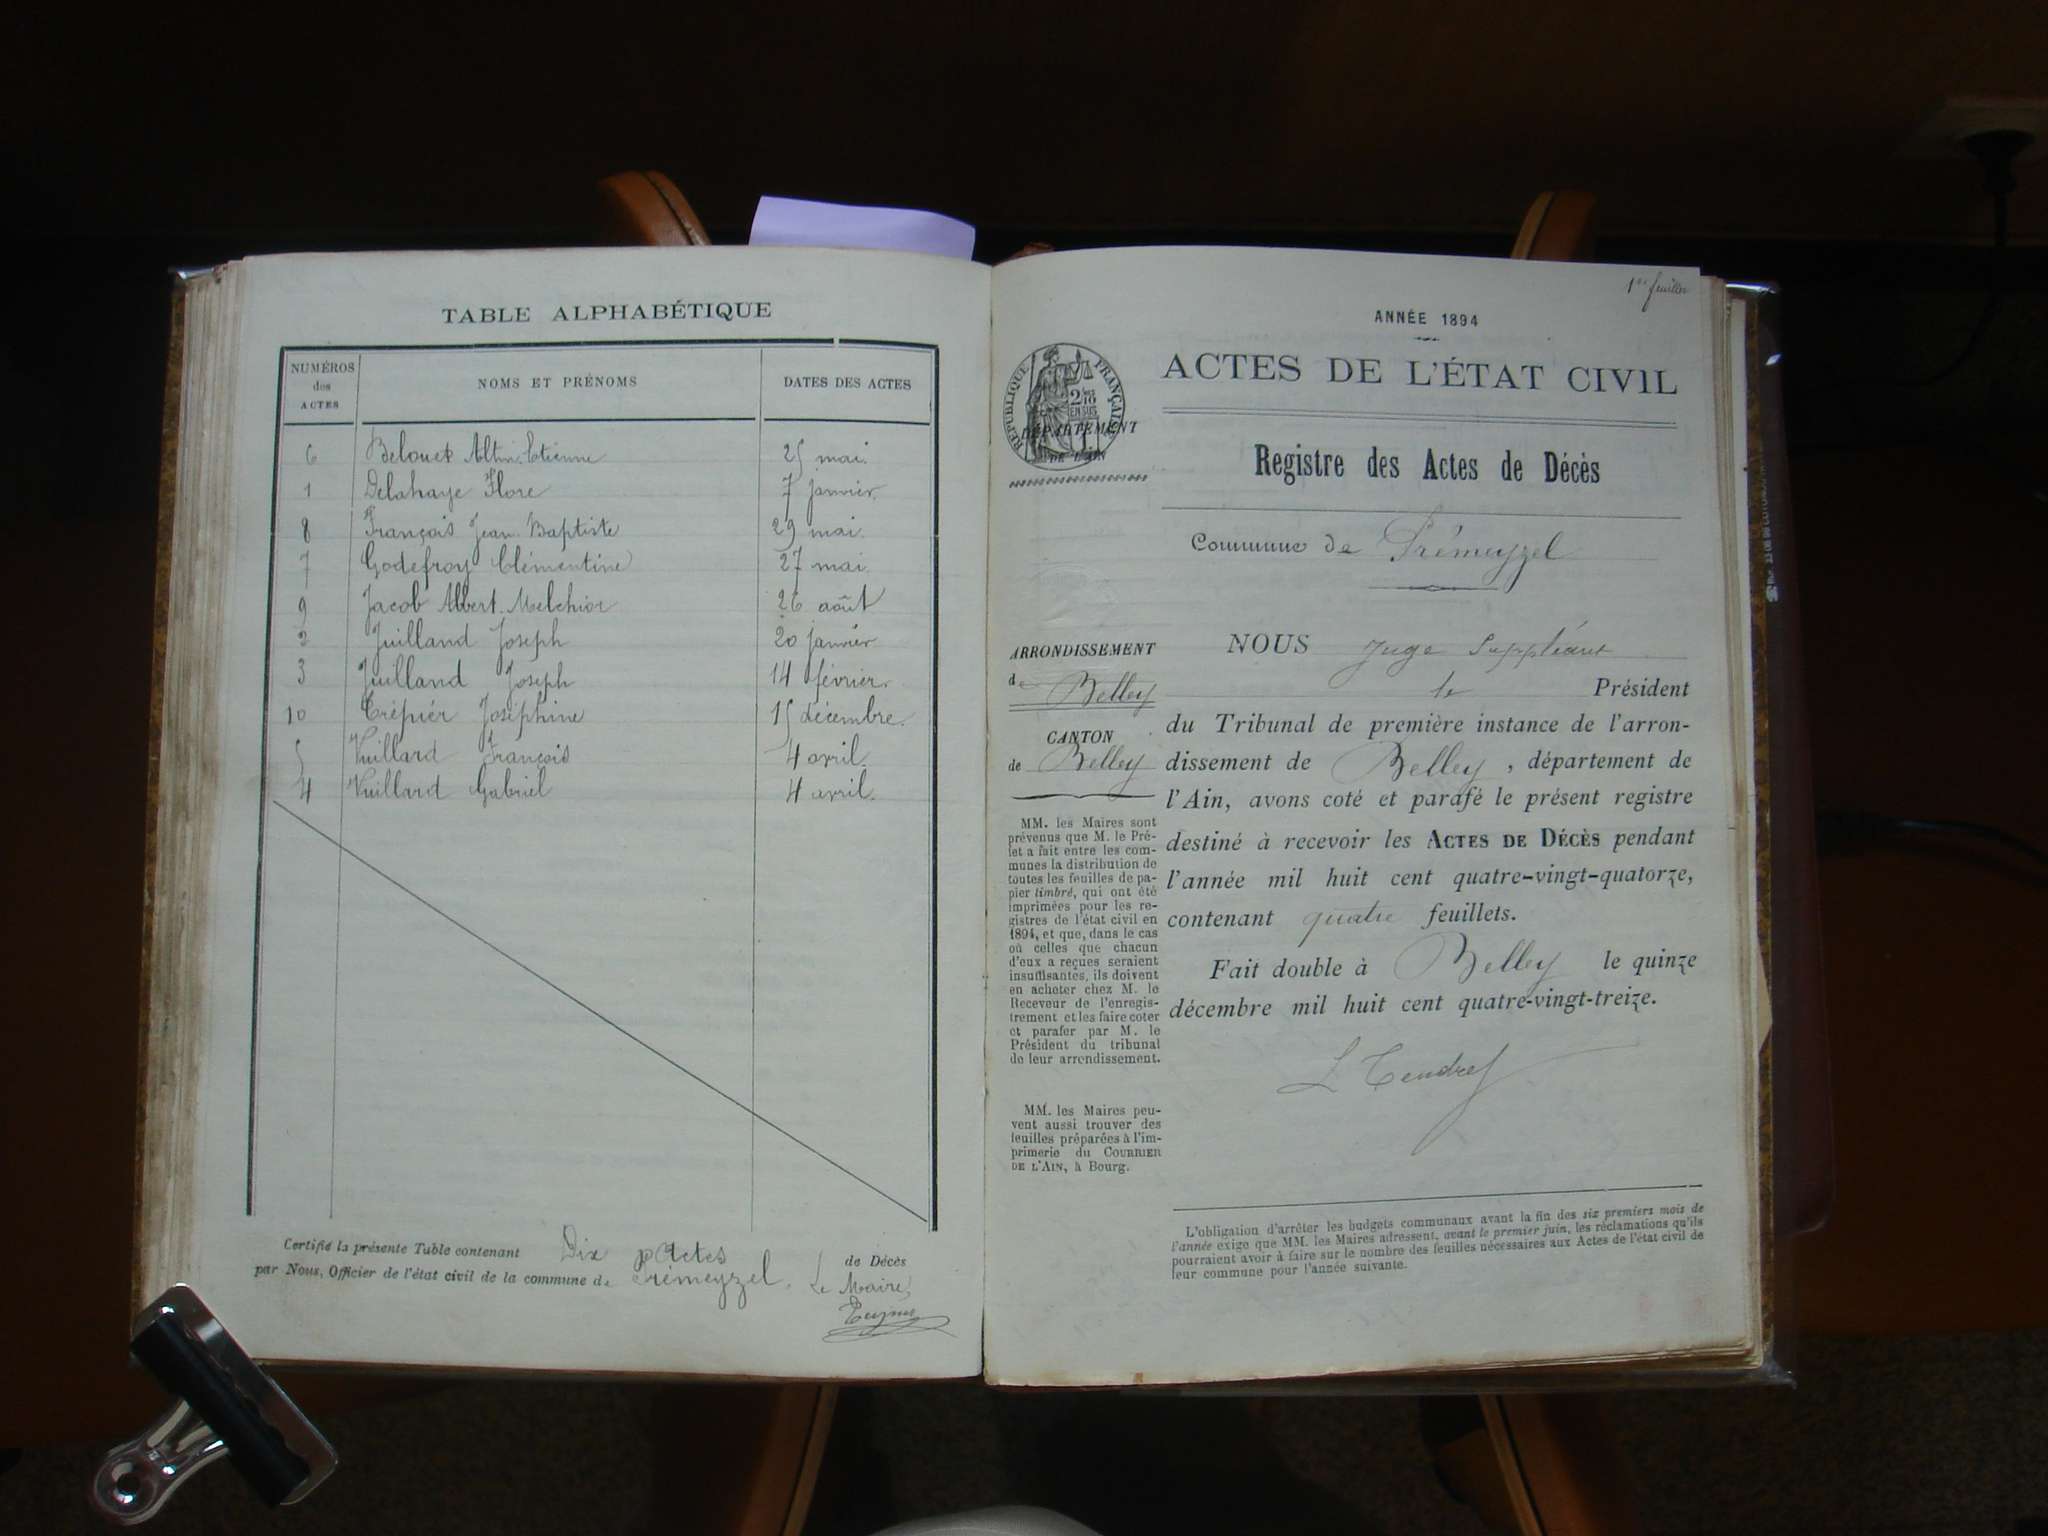 TABLE ALPHABÉTIQUE
NUMÉROS des ACTES NOMS ET PRÉNOMS DATES DES ACTES
6 Belouet Etienne 25 mai.
1 Delahaye Flore 7 janvier.
8 François Jean-Baptiste 29 mai.
7 Godefroy Clémentine 27 mai.
9 Jacob Albert-Melchior 26 août
2 Juilland Joseph 20 janvier
3 Juilland Joseph 14 février.
10 Trépier Joséphine 15 décembre.
5 Vuillard François 4 avril.
4 Vuillard Gabriel 4 avril.
Certifié la présente Table contenant Dix Actes de Décès
par Nous, Officier de l'état civil de la commune de Prémeyzel. Le Maire,
1er feuillet
ANNÉE 1894
RÉPUBLIQUE FRANÇAISE
2/10 EN SUS
DÉPARTEMENT
DE L'AIN
ACTES DE L'ÉTAT CIVIL
Registre des Actes de Décès
Commune de Prémeyzel
ARRONDISSEMENT
de Belley
CANTON
de Belley
MM. les Maires sont
prévenus que M. le Pré-
fet a fait entre les com-
munes la distribution de
toutes les feuilles de pa-
pier timbré, qui ont été
imprimées pour les re-
gistres de l'état civil en
1894, et que, dans le cas
où celles que chacun
d'eux a reçues seraient
insuffisantes, ils doivent
en acheter chez M. le
Receveur de l'enregis-
trement et les faire coter
et parafer par M. le
Président du tribunal
de leur arrondissement.
MM. les Maires peu-
vent aussi trouver des
feuilles préparées à l'im-
primerie du COURRIER
DE L'AIN, à Bourg.
NOUS Juge Suppléant
le Président
du Tribunal de première instance de l'arron-
dissement de Belley, département de
l'Ain, avons coté et parafé le présent registre
destiné à recevoir les ACTES DE DÉCÈS pendant
l'année mil huit cent quatre-vingt-quatorze,
contenant quatre feuillets.
Fait double à Belley le quinze
décembre mil huit cent quatre-vingt-treize.
L'obligation d'arrêter les budgets communaux avant la fin des six premiers mois de
l'année exige que MM. les Maires adressent, avant le premier juin, les réclamations qu'ils
pourraient avoir à faire sur le nombre des feuilles nécessaires aux Actes de l'état civil de
leur commune pour l'année suivante.